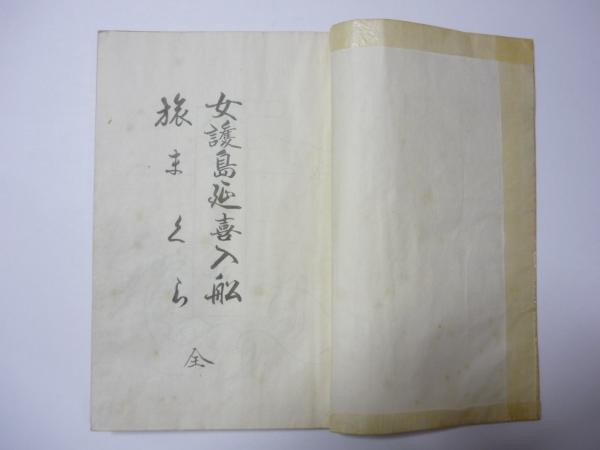 女護島延喜入船
旅まくら
全